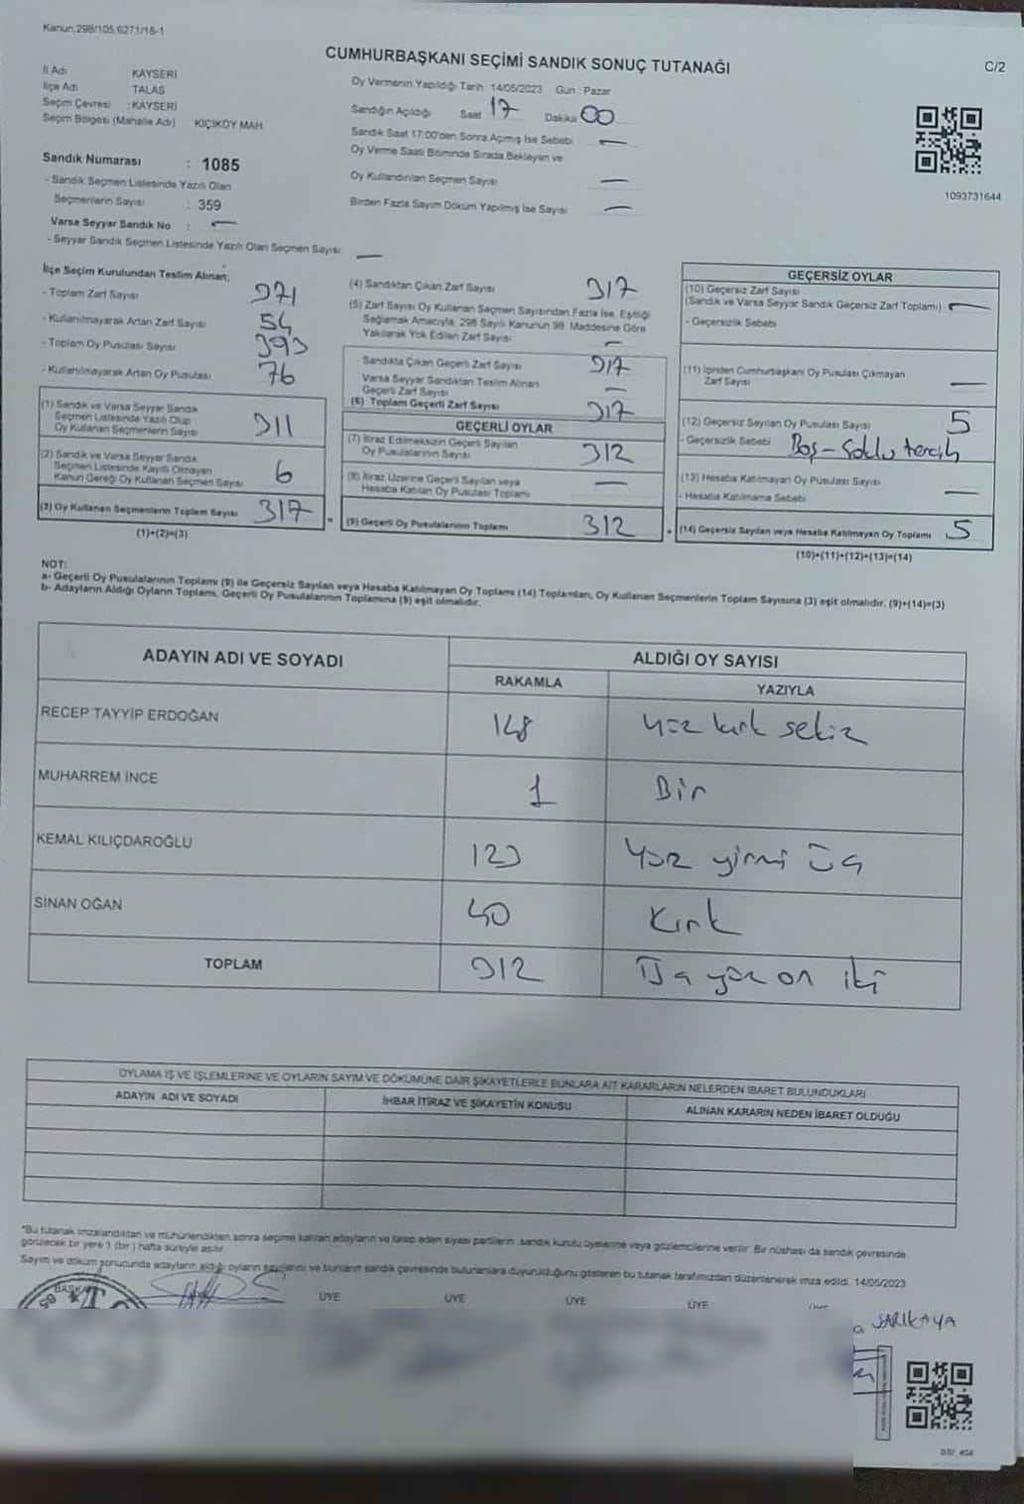 Kanun:298/105,6271/16-1
CUMHURBAŞKANI SEÇİMİ SANDIK SONUÇ TUTANAĞI
C/2
İl Adı KAYSERİ
İlçe Adı TALAS
Seçim Çevresi : KAYSERİ
Seçim Bölgesi (Mahalle Adı) KIÇIKÖY MAH.
Sandık Numarası : 1085
- Sandık Seçmen Listesinde Yazılı Olan
Seçmenlerin Sayısı : 359
Varsa Seyyar Sandık No : —
- Seyyar Sandık Seçmen Listesinde Yazılı Olan Seçmen Sayısı: —
Oy Vermenin Yapıldığı Tarih: 14/05/2023 Gün : Pazar
Sandığın Açıldığı Saat 17 Dakika 00
Sandık Saat 17:00'den Sonra Açılmış İse Sebebi —
Oy Verme Saati Bitiminde Sırada Bekleyen ve
Oy Kullandırılan Seçmen Sayısı —
Birden Fazla Sayım Döküm Yapılmış İse Sayısı —
1093731644
İlçe Seçim Kurulundan Teslim Alınan;
- Toplam Zarf Sayısı 371
- Kullanılmayarak Artan Zarf Sayısı 54
- Toplam Oy Pusulası Sayısı 393
- Kullanılmayarak Artan Oy Pusulası 76
(1) Sandık ve Varsa Seyyar Sandık
Seçmen Listesinde Yazılı Olup
Oy Kullanan Seçmenlerin Sayısı 311
(2) Sandık ve Varsa Seyyar Sandık
Seçmen Listesinde Kayıtlı Olmayan
Kanun Gereği Oy Kullanan Seçmen Sayısı 6
(3) Oy Kullanan Seçmenlerin Toplam Sayısı 317
(1)+(2)=(3)
(4) Sandıktan Çıkan Zarf Sayısı 317
(5) Zarf Sayısı Oy Kullanan Seçmen Sayısından Fazla İse, Eşitliği
Sağlamak Amacıyla, 298 Sayılı Kanunun 98. Maddesine Göre
Yakılarak Yok Edilen Zarf Sayısı —
Sandıkta Çıkan Geçerli Zarf Sayısı 317
Varsa Seyyar Sandıktan Teslim Alınan
Geçerli Zarf Sayısı —
(6) Toplam Geçerli Zarf Sayısı 317
GEÇERLİ OYLAR
(7) İtiraz Edilmeksizin Geçerli Sayılan
Oy Pusulalarının Sayısı 312
(8) İtiraz Üzerine Geçerli Sayılan veya
Hesaba Katılan Oy Pusulası Toplamı —
(9) Geçerli Oy Pusulalarının Toplamı 312
GEÇERSİZ OYLAR
(10) Geçersiz Zarf Sayısı
(Sandık ve Varsa Seyyar Sandık Geçersiz Zarf Toplamı) —
- Geçersizlik Sebebi
(11) İçinden Cumhurbaşkanı Oy Pusulası Çıkmayan
Zarf Sayısı —
(12) Geçersiz Sayılan Oy Pusulası Sayısı 5
- Geçersizlik Sebebi Boş -
(13) Hesaba Katılmayan Oy Pusulası Sayısı —
- Hesaba Katılmama Sebebi
(14) Geçersiz Sayılan veya Hesaba Katılmayan Oy Toplamı 5
(10)+(11)+(12)+(13)=(14)
NOT:
a- Geçerli Oy Pusulalarının Toplamı (9) ile Geçersiz Sayılan veya Hesaba Katılmayan Oy Toplamı (14) Toplamları, Oy Kullanan Seçmenlerin Toplam Sayısına (3) eşit olmalıdır. (9)+(14)=(3)
b- Adayların Aldığı Oyların Toplamı, Geçerli Oy Pusulalarının Toplamına (9) eşit olmalıdır.
ADAYIN ADI VE SOYADI ALDIĞI OY SAYISI
RAKAMLA YAZIYLA
RECEP TAYYİP ERDOĞAN 148 Yüz kırk sekiz
MUHARREM İNCE 1 Bir
KEMAL KILIÇDAROĞLU 123 Yüz yirmi üç
SİNAN OĞAN 40 Kırk
TOPLAM 312 Üç yüz on iki
OYLAMA İŞ VE İŞLEMLERİNE VE OYLARIN SAYIM VE DÖKÜMÜNE DAİR ŞİKAYETLERLE BUNLARA AİT KARARLARIN NELERDEN İBARET BULUNDUKLARI
ADAYIN ADI VE SOYADI İHBAR İTİRAZ VE ŞİKAYETİN KONUSU ALINAN KARARIN NEDEN İBARET OLDUĞU
*Bu tutanak imzalandıktan ve mühürlendikten sonra seçime katılan adayların ve talep eden siyasi partilerin sandık kurulu üyelerine veya gözlemcilerine verilir. Bir nüshası da sandık çevresinde
görülecek bir yere 1 (bir) hafta süreyle asılır.
Sayım ve döküm sonucunda adayların aldığı oyların sayılarını ve bunların sandık çevresinde bulunanlara duyurulduğunu gösteren bu tutanak tarafımızdan düzenlenerek imza edildi. 14/05/2023
BAŞKAN ÜYE ÜYE ÜYE ÜYE
SARIKAYA